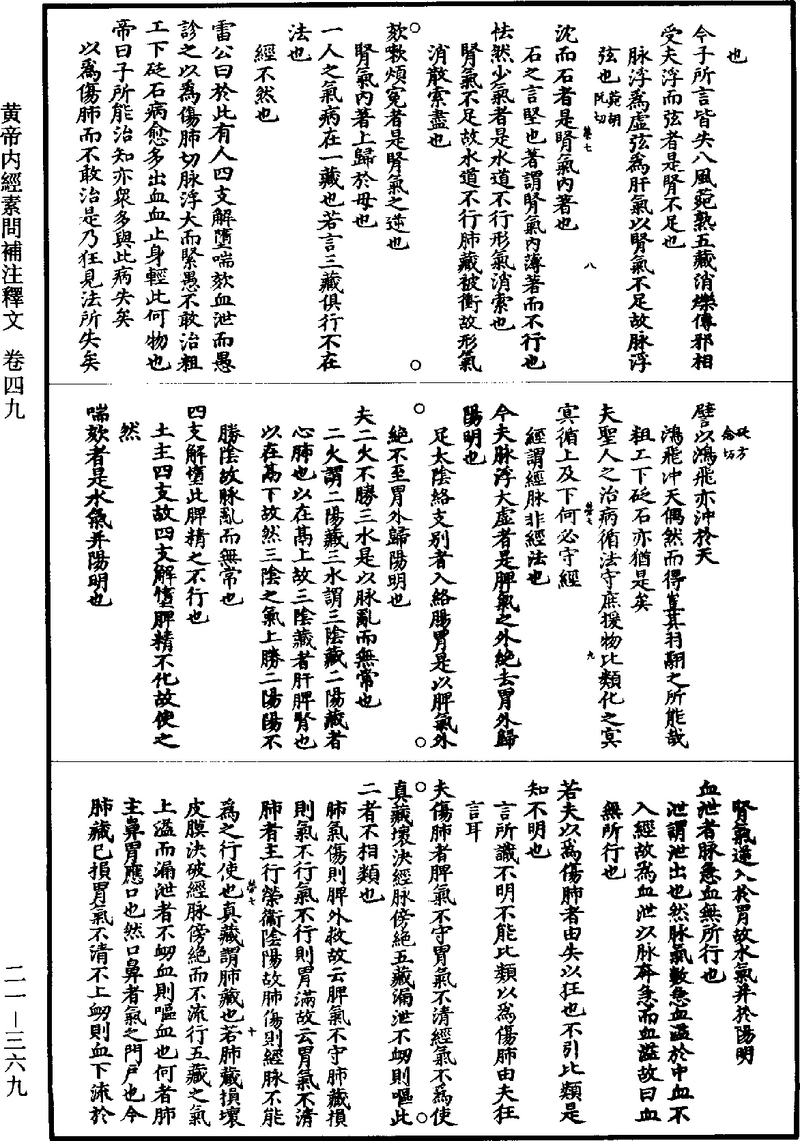 黄帝内經素問補注釋文　卷四九
二一—三六九
也
今子所言皆失八風菀熟五藏消爍傳邪相
受夫浮而弦者是腎不足也
脉浮為虛弦為肝氣以腎氣不足故脉浮
弦也菀胡阮切
沈而石者是腎氣內著也
石之言堅也著謂腎氣內薄著而不行也
怯然少氣者是水道不行形氣消索也
腎氣不足故水道不行肺藏被衝故形氣
消散索盡也
欬嗽煩冤者是腎氣之逆也
腎氣內著上歸於母也
一人之氣病在一藏也若言三藏俱行不在
法也
經不然也
雷公曰於此有人四支解墮喘欬血泄而愚
診之以為傷肺切脉浮大而緊愚不敢治粗
工下砭石病愈多出血血止身輕此何物也
帝曰子所能治知亦衆多與此病失矣
以為傷肺而不敢治是乃狂見法所失矣
砭方念切
譬以鴻飛亦沖於天
鴻飛沖天偶然而得豈其羽翮之所能哉
粗工下砭石亦猶是矣
夫聖人之治病循法守度援物比類化之冥
冥循上及下何必守經
經謂經脉非經法也
今夫脉浮大虛者是脾氣之外絕去胃外歸
陽明也
足太陰絡支別者入絡腸胃是以脾氣外
絕不至胃外歸陽明也
夫二火不勝三水是以脉亂而無常也
二火謂二陽藏三水謂三陰藏二陽藏者
心肺也以在髙上故三陰藏者肝脾腎也
以在髙下故然三陰之氣上勝二陽陽不
勝陰故脉亂而無常也
四支解墮此脾精之不行也
土主四支故四支解墮脾精不化故使之
然
喘欬者是水氣并陽明也
腎氣逆入於胃故水氣并於陽明
血泄者脉急血無所行也
泄謂泄出也然脉氣數急血溢於中血不
入經故為血泄以脉奔急而血溢故曰血
無所行也
若夫以為傷肺者由失以狂也不引比類是
知不明也
言所識不明不能比類以為傷肺由失狂
言耳
夫傷肺者脾氣不守胃氣不清經氣不為使
真藏壞決經脉傍絕五藏漏泄不衂則嘔此
二者不相類也
肺氣傷則脾外救故云脾氣不守肺藏損
則氣不行氣不行則胃滿故云胃氣不清
肺者主行榮衞陰陽故肺傷則經脉不能
為之行使也真藏謂肺藏也若肺藏損壞
皮膜決破經脉傍絕而不流行五藏之氣
上溢而漏泄者不衂血則嘔血也何者肺
主鼻胃應口也然口鼻者氣之門戶也今
肺藏已損胃氣不清不上衂則血下流於